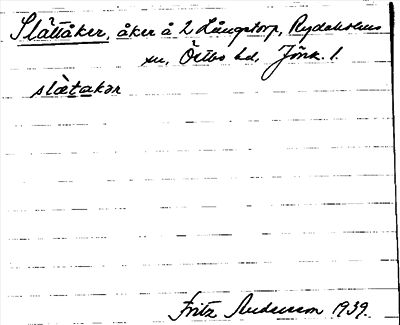 Slättåker, åker å 2 Långstorp, Rydaholms
sn, Östbo hd, Jönk. l.
slätakər
Fritz Andersson 1939.